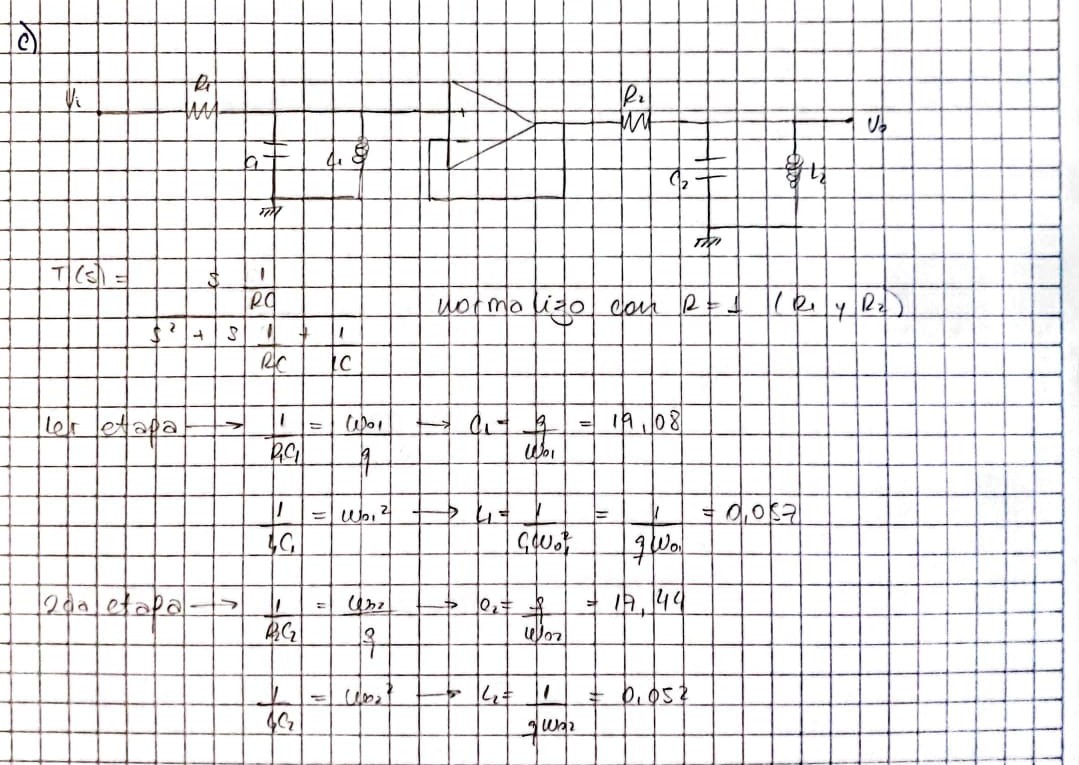 c)
Vi R1 + - R2 Vo
C1 L1 C2 L2
T(s) = s 1/RC / s² + s 1/RC + 1/LC
normalizo con R = 1 (R1 y R2)
1er etapa → 1/R1C1 = ω01/q → C1 = q/ω01 = 19,08
1/L1C1 = ω01² → L1 = 1/C1ω01² = 1/qω01 = 0,057
2da etapa → 1/R2C2 = ω02/q → C2 = q/ω02 = 17,44
1/L2C2 = ω02² → L2 = 1/qω02 = 0,052